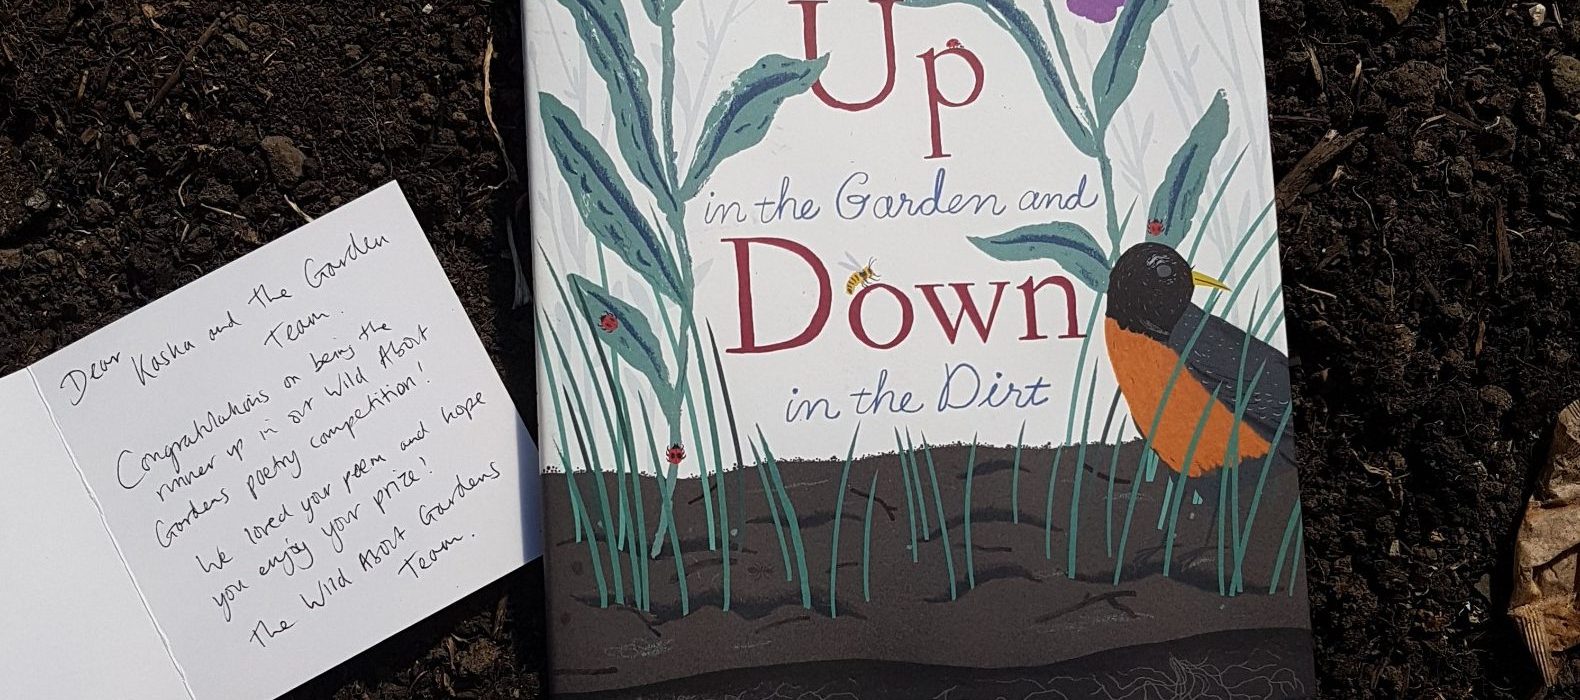 Dear Kasha and the Garden
Team.
Congratulations on being the
runner up in our Wild About
Gardens poetry competition!
We loved your poem and hope
you enjoy your prize!
The Wild About Gardens
Team.
Up
in the Garden and
Down
in the Dirt